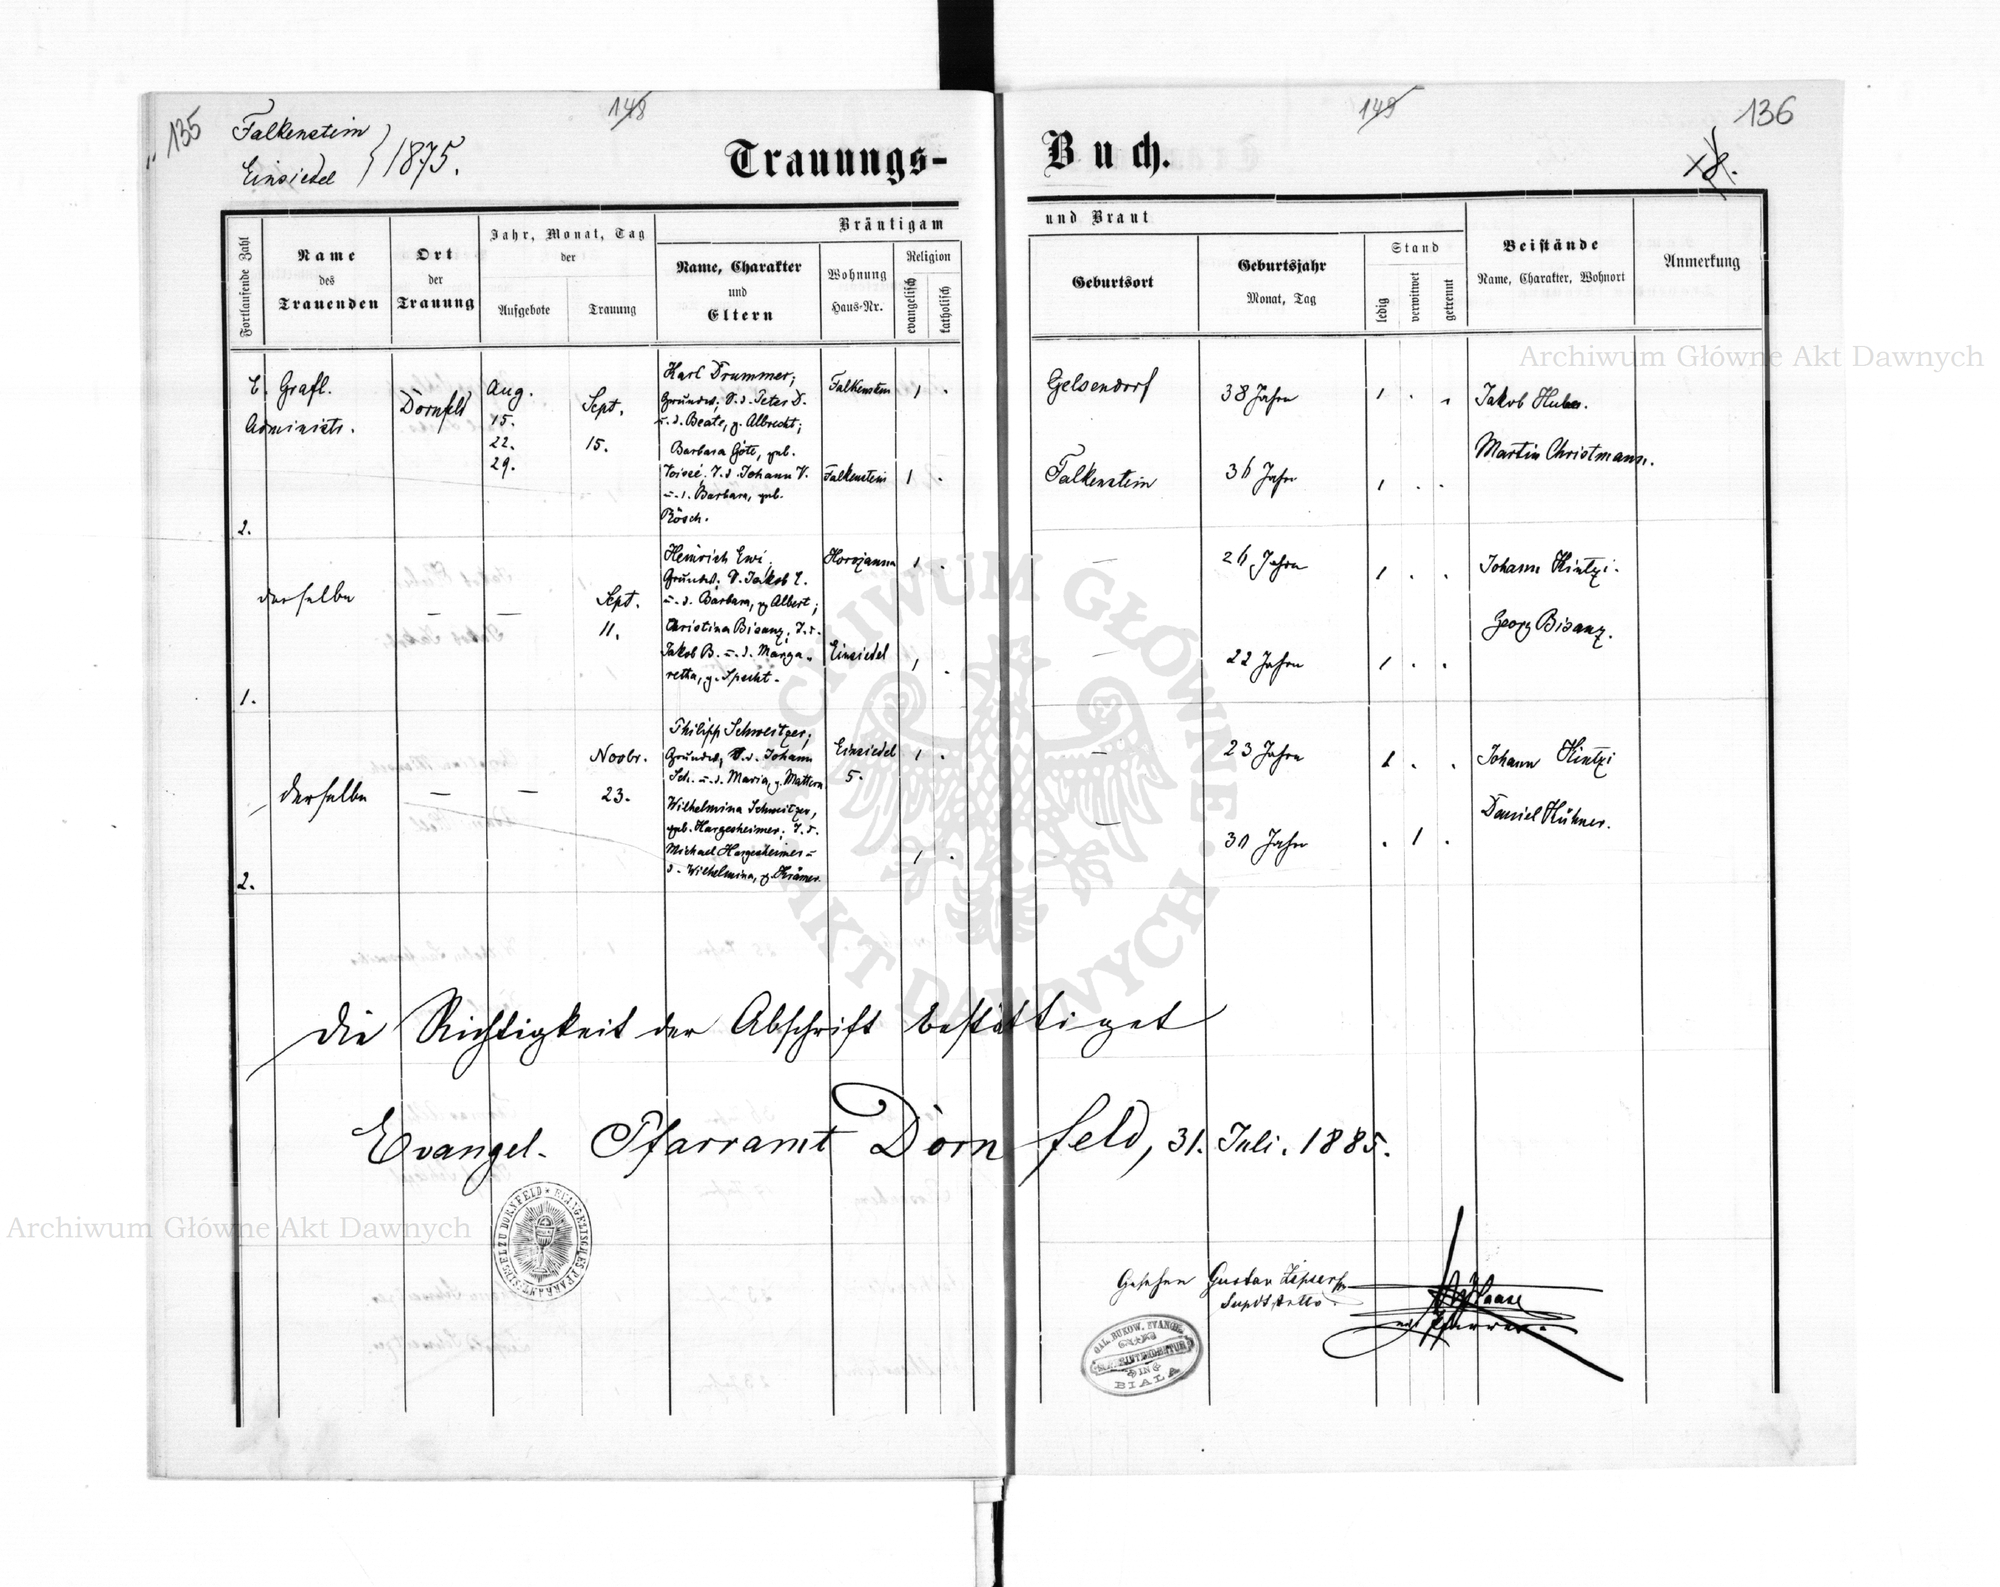 135
Falkenstein
Einsiedel
1875.
148
149
136
Trauungs-Buch.
Fortlaufende Zahl
Name
des
Trauenden
Ort
der
Trauung
Jahr, Monat, Tag
der
Aufgebote
Trauung
Bräutigam und Braut
Name, Charakter
und
Eltern
Wohnung
Haus-Nr.
Religion
evangelisch
katholisch
Geburtsort
Geburtsjahr
Monat, Tag
Stand
ledig
verwitwet
getrennt
Beistände
Name, Charakter, Wohnort
Anmerkung
E. Grafl.
Administr.
Dornfeld
Aug.
15.
22.
29.
Sept.
15.
Karl Drummer;
Grundw; S. d. Peter D.
u. d. Beate, g. Albrecht;
Falkenstein
1
.
Gelsendorf
38 Jahre
1
.
.
Jakob Huber.
Barbara Göte, geb.
Voisé. T. d. Johann V.
u. d. Barbara, geb.
Rösch.
Falkenstein
1
.
Falkenstein
36 Jahre
1
.
.
Martin Christmann.
2.
derselbe
—
—
Sept.
11.
Heinrich Ewi,
Grundw. S. Jakob E.
u. d. Barbara, g. Albert;
Horozanna
1
.
—
26 Jahre
1
.
.
Johann Kintzi.
Christina Bisanz, T. d.
Jakob B. u. d. Marga-
retha, g. Specht.
Einsiedel
1
.
—
22 Jahre
1
.
.
Georg Bisanz.
1.
derselbe
—
—
Novbr.
23.
Philipp Schweitzer;
Grundw; S. d. Johann
Sch. u. d. Maria, g. Mattern
Einsiedel
5.
1
.
—
23 Jahre
1
.
.
Johann Kintzi
Wilhelmina Schweitzer,
geb. Hargesheimer; T. d.
Michael Hargesheimer u
d. Wilhelmina, g. Krämer.
1
.
—
30 Jahre
.
1
.
Daniel Hühner.
2.
Die Richtigkeit der Abschrift bestättiget
Evangel. Pfarramt Dornfeld, 31. Juli. 1885.
SIEGEL ZU DORNFELD * EVANGELISCHES PFARRAMT
Gesehen Gustav Zipser
GAL. BUKOW. EVANGEL.
SUPERINTENDENTUR
IN
BIALA
Haase
Pfarrer.
Archiwum Główne Akt Dawnych
Archiwum Główne Akt Dawnych
ARCHIWUM GŁÓWNE AKT DAWNYCH